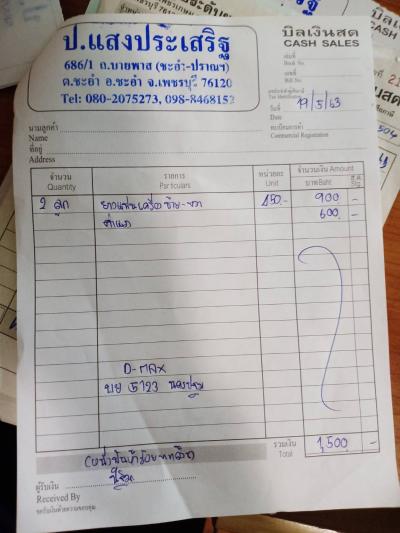 ป.แสงประเสริฐ
686/1 ถ.บายพาส (ชะอำ-ปราณฯ)
ต.ชะอำ อ.ชะอำ จ.เพชรบุรี 76120
Tel: 080-2075273, 098-8468152
บิลเงินสด
CASH SALES
เล่มที่
Book No.
เลขที่
Bill No.
เลขประจำตัวผู้เสียภาษี
Tax Identification
วันที่ 19/5/63
Date
ทะเบียนการค้า
Commercial Registration
นามลูกค้า
Name
ที่อยู่
Address
จำนวน รายการ หน่วยละ จำนวนเงิน Amount
Quantity Particulars Unit บาท Baht ส.ต. Stg.
2 ลูก ยางแท่นเครื่อง ซ้าย-ขวา 450.- 900 -
ค่าแรง 600. -
D-max
บย 5123 นครปฐม
รวมเงิน 1,500. -
Total
(หนึ่งพันห้าร้อยบาทถ้วน)
ผู้รับเงิน
Received By
ขอรับเงินด้วยความขอบคุณ
CASH